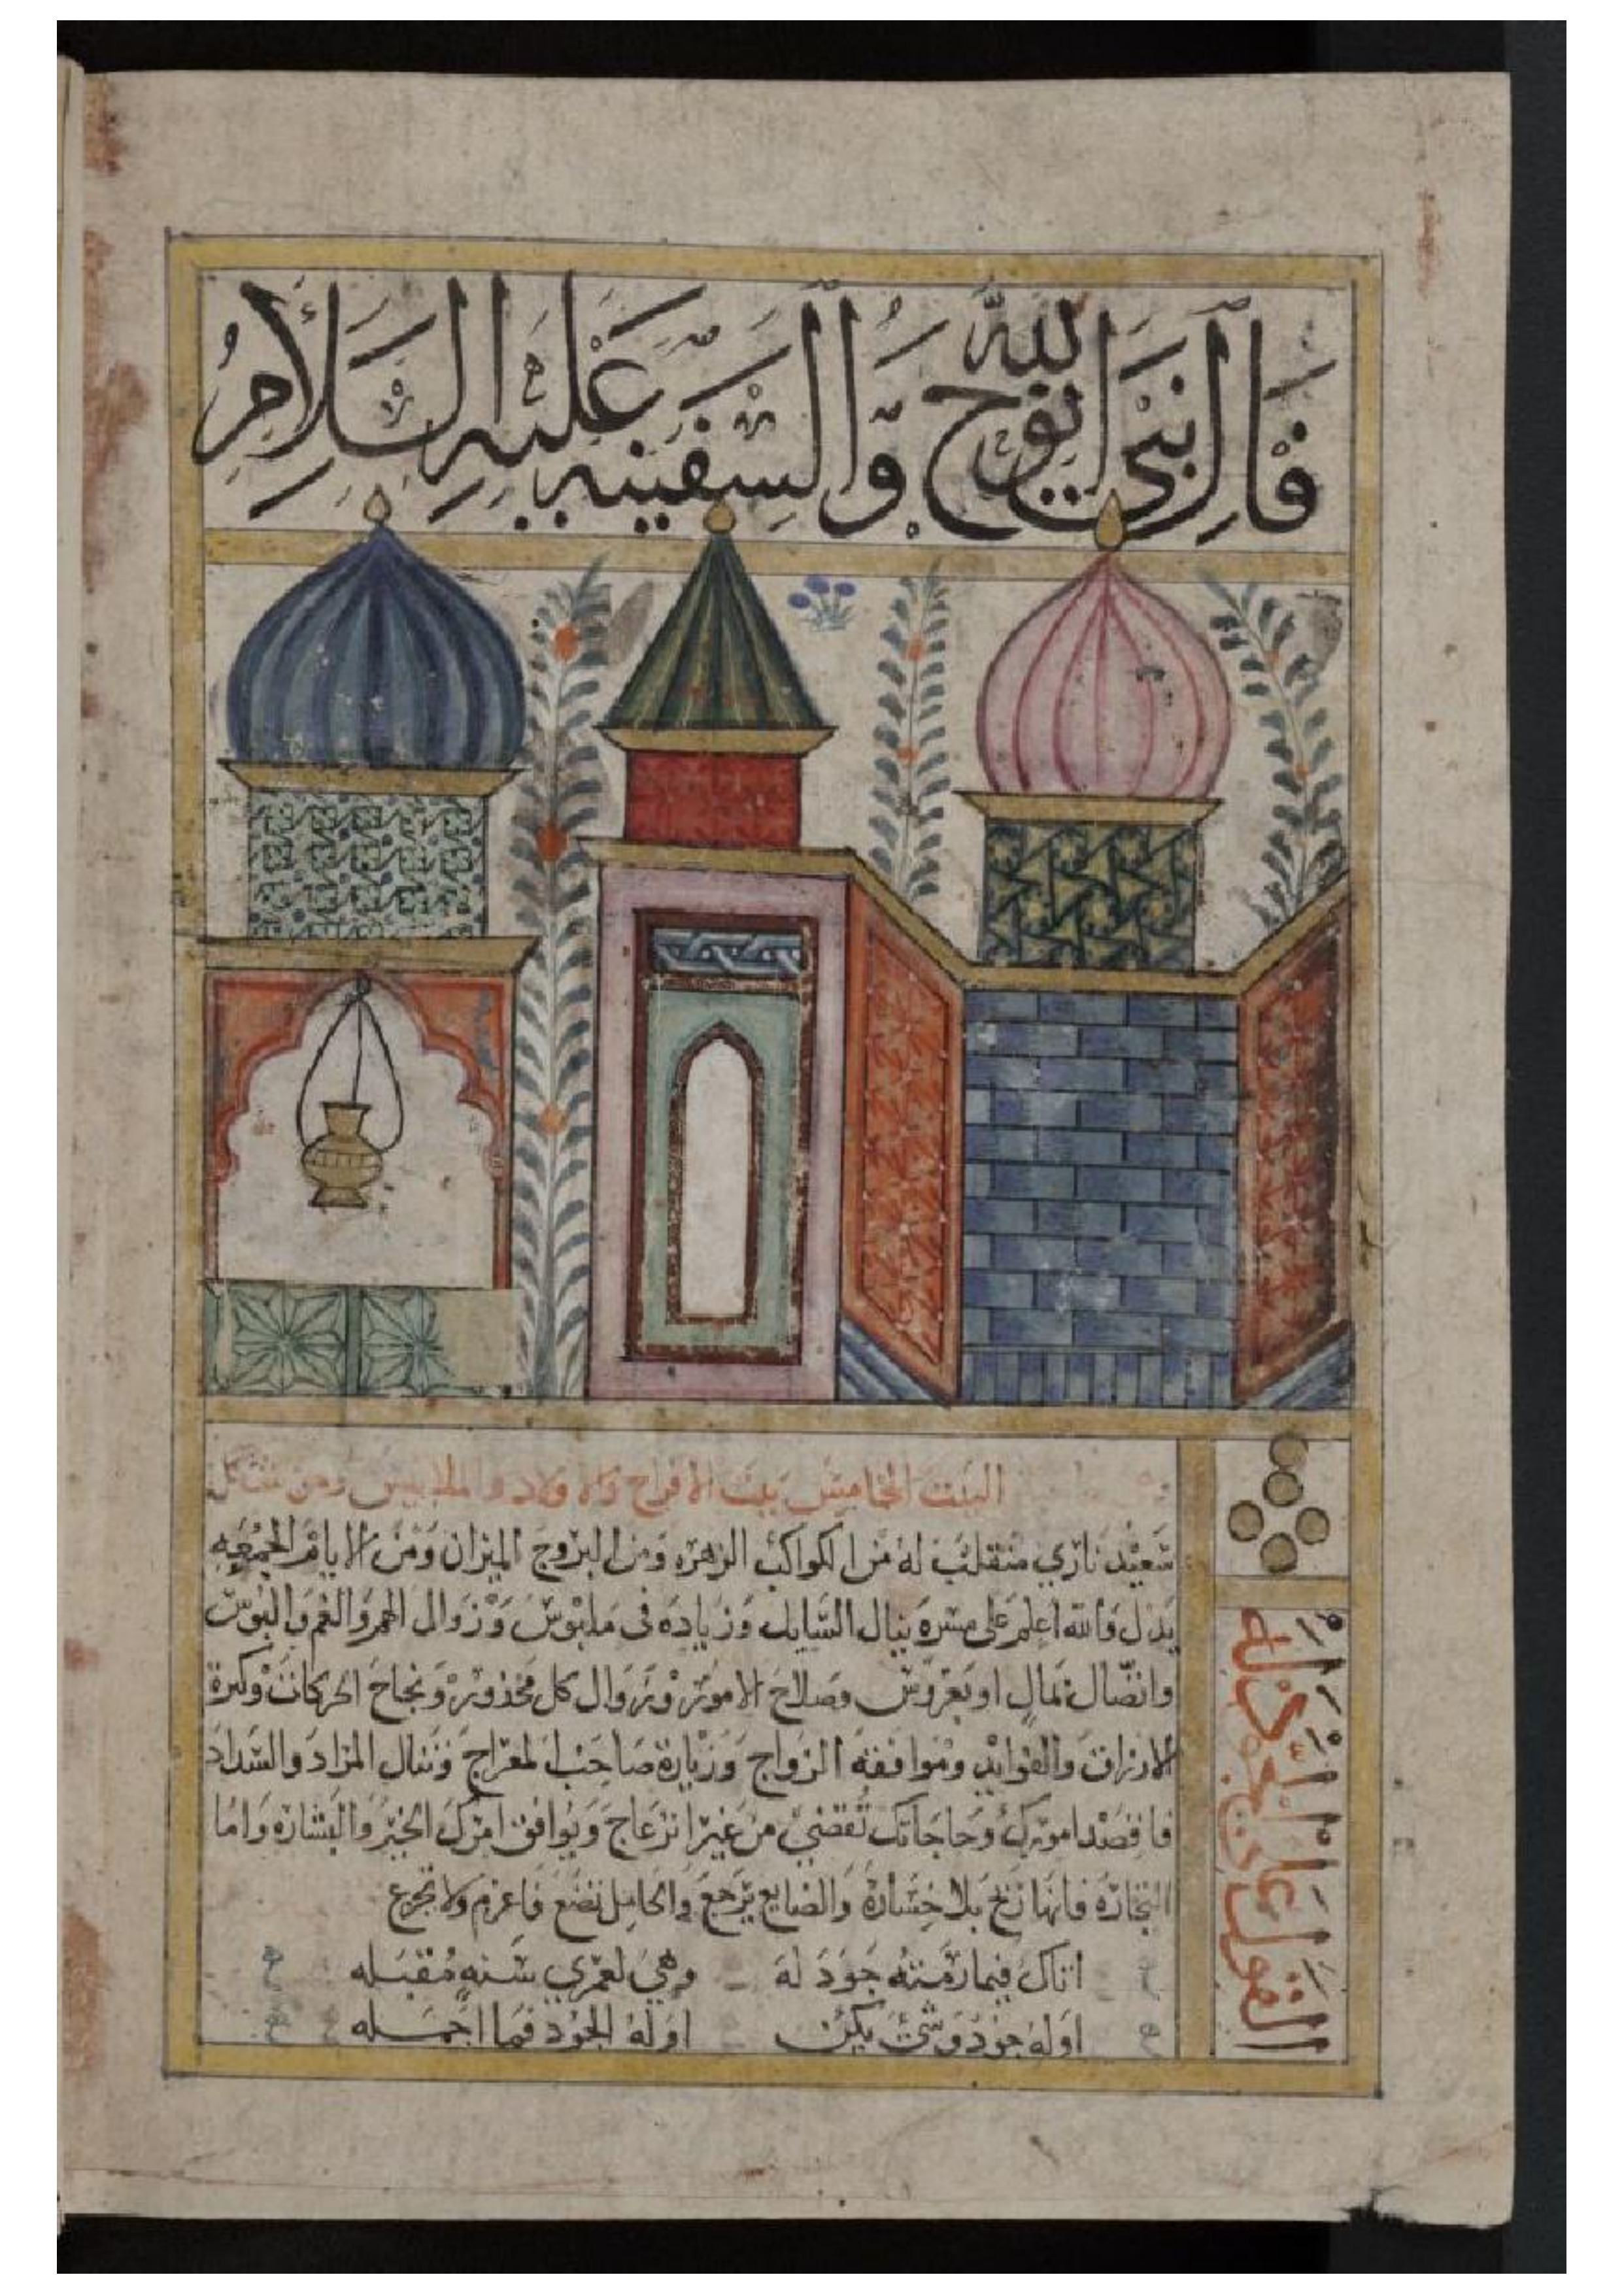 فَال النَبيّ الله نوح وَالسَفينه عَليهِ السَلامُ
البيت الخامس بيت الافراح والاولاد والملابيس ومن
سَعيْد ناري منقلب لهُ من الكواكب الزهره ومن البروج الميزان ومن الايام الجمُعَه
يَدل وَالله اعلم على مسره ينال السَايل وَزياده في ملبوس وَزوال الهم وَالغم وَالبوس
وَاتصال بمال او بعروس وصلاح الامور وزوال كل محذور ونجاح الحركات وكثرة
الارزاق وَالفوايد وموافقة الزواج وَزيارة صاحب المعراج وتنال المراد والسَداد
فاقصد امورك وحاجاتك تُقضى من غير انزعاج وَيوافق امرك الخير وَالبشاره وَاما
التجارَه فانها تربح بلا خسَاره وَالضايع يرجع وَالحامل تضع فاعزم ولا تجزع
اتاك فيما رمته جود له وهيَ لعمري سَنه مُقبَله
اوله جود وشئ يكن اوله الجود فما اجمله
القول على